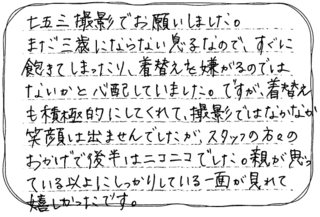 七五三撮影でお願いしました。
まだ三歳にならない息子なので、すぐに
飽きてしまったり、着替えを嫌がるのでは
ないかと心配していました。ですが、着替え
も積極的にしてくれて、撮影ではなかなか
笑顔は出ませんでしたが、スタッフの方々の
おかげで後半はニコニコでした。親が思っ
ている以上にしっかりしている一面が見れて
嬉しかったです。